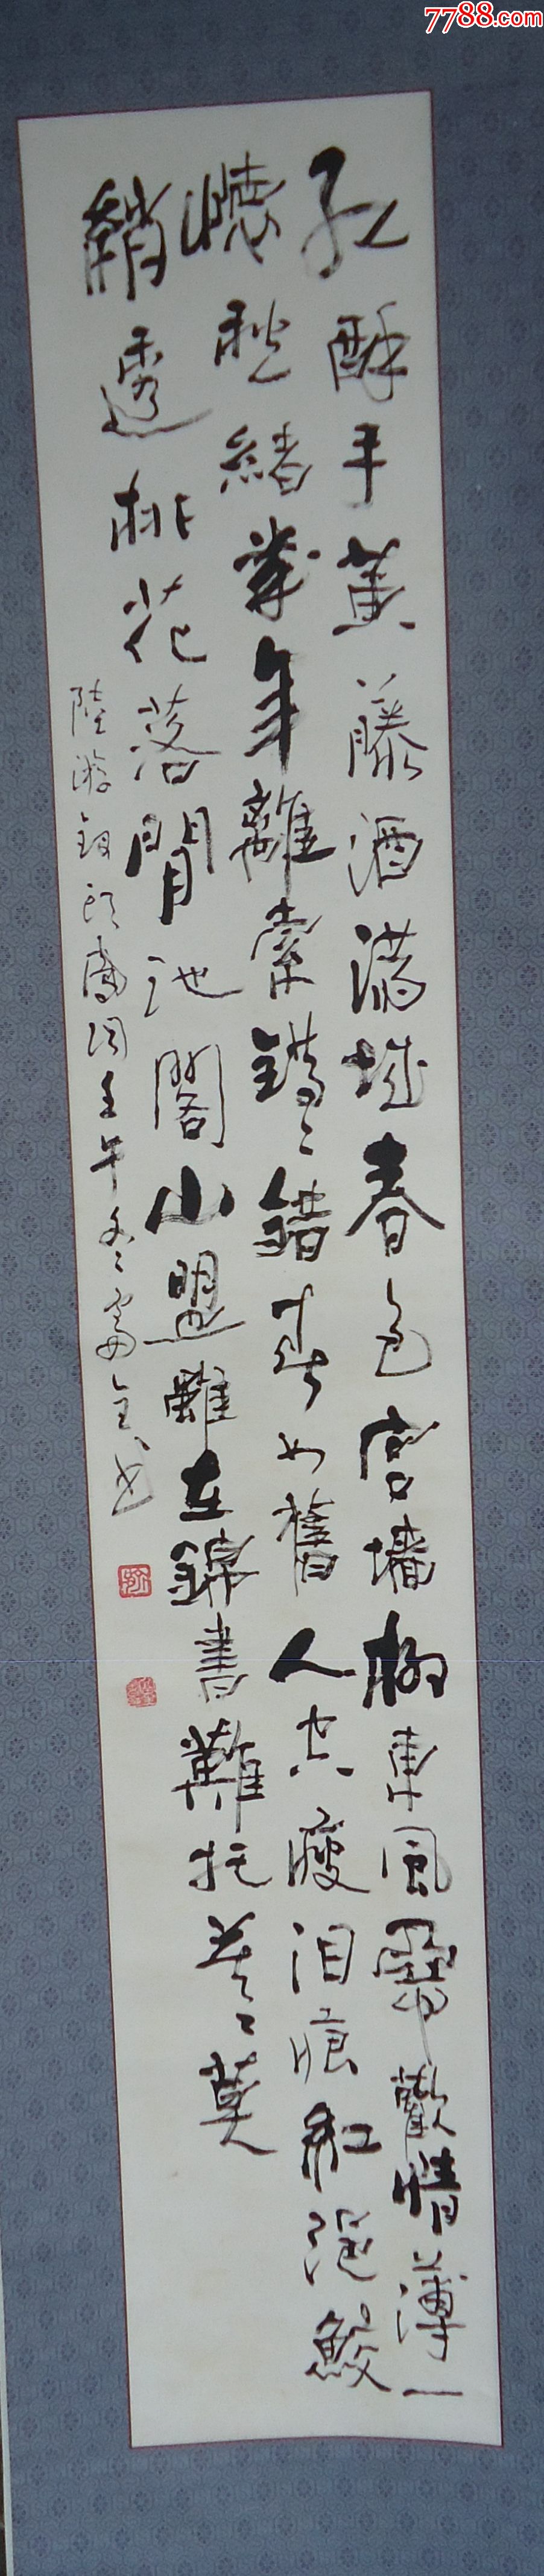 7788.com
紅酥手黃藤酒滿城春色宮墻柳東風惡歡情薄一
懷愁緒幾年離索錯〻錯春如舊人空瘦泪痕紅浥鮫
綃透桃花落閒池閣山盟雖在錦書難托莫〻莫
陸游釵頭鳳詞壬午冬書